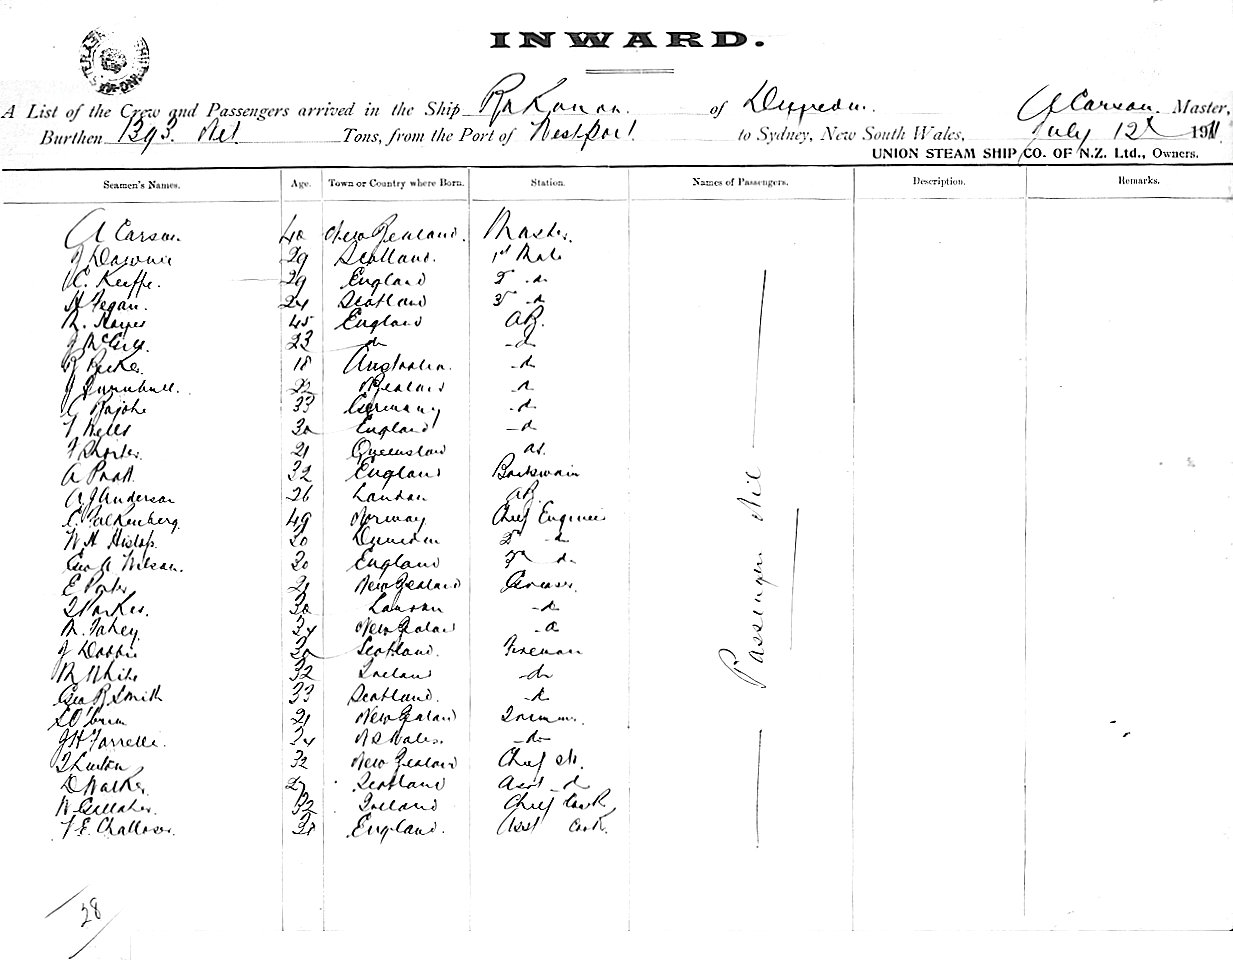 INWARD.
A List of the Crew and Passengers arrived in the Ship Rakanoa of Dunedin. A Carson. Master,
Burthen 1393 Net Tons, from the Port of Westport to Sydney, New South Wales, July 12th 1911.
UNION STEAM SHIP CO. OF N.Z. Ltd., Owners.
Seamen's Names. Age. Town or Country where Born. Station. Names of Passengers. Description. Remarks.
A Carson 40 New Zealand. Master.
J Downie 29 Scotland. 1st Mate
C. Keiffe. 29 England 2nd do
H Fegan. 24 Scotland 3rd do
M. Hayes 45 England AB.
J McGill. 23 do do
R 18 Australia. do
J Turnbull. 22 N Zealand do
C 33 Germany do
T Wells 30 England do
T Shorter 21 Queensland os.
A Pratt 32 England Boatswain
A J Anderson 26 London AB.
C Falkenberg. 49 Norway Chief Engineer
W H Hislop. 30 Dunedin 2nd do
Geo A Wilson. 30 England 3rd do
E Porter 21 New Zealand Greaser
T Parkes. 30 London do
M. Fahey. 34 New Zealand do
J Dobbie 30 Scotland. Fireman
M White 32 Ireland do
Geo R Smith 33 Scotland. do
S O'Brien 21 New Zealand Trimmer.
J H Farrelle. 24 N S Wales. do
T Luxton 32 New Zealand Chief St.
D Walker. 27 Scotland Asst do
W Gallaher. 32 Ireland Chief Cook
T E Challoner. 38 England. Asst Cook.
Passengers Nil
28